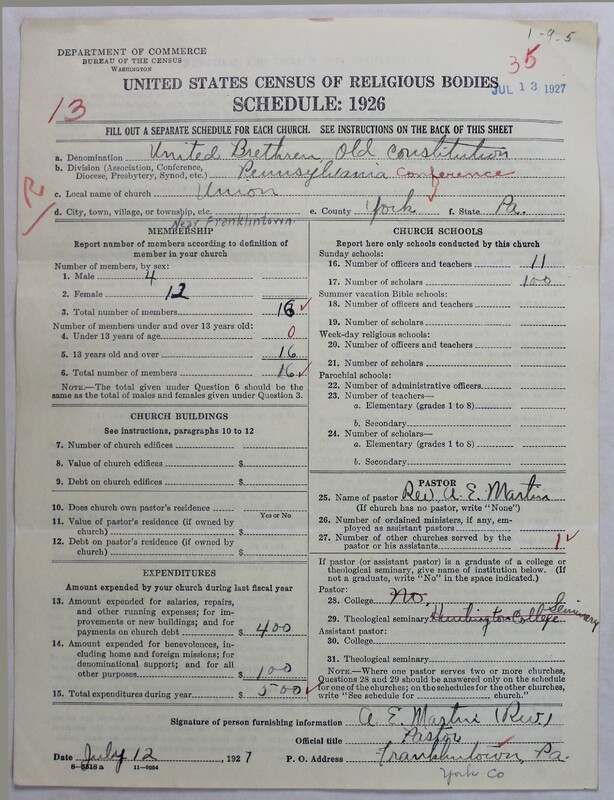 1-9-5
DEPARTMENT OF COMMERCE
BUREAU OF THE CENSUS
WASHINGTON
35
UNITED STATES CENSUS OF RELIGIOUS BODIES
JUL 13 1927
13
SCHEDULE: 1926
FILL OUT A SEPARATE SCHEDULE FOR EACH CHURCH. SEE INSTRUCTIONS ON THE BACK OF THIS SHEET
a. Denomination United Brethren, Old Constitution
b. Division (Association, Conference, Diocese, Presbytery, Synod, etc.) Pennsylvania Conference
c. Local name of church Union
d. City, town, village, or township, etc. Near Franklintown e. County York f. State Pa.
MEMBERSHIP
Report number of members according to definition of member in your church
Number of members, by sex:
1. Male 4
2. Female 12
3. Total number of members 16
Number of members under and over 13 years old:
4. Under 13 years of age 0
5. 13 years old and over 16
6. Total number of members 16
NOTE.—The total given under Question 6 should be the same as the total of males and females given under Question 3.
CHURCH BUILDINGS
See instructions, paragraphs 10 to 12
7. Number of church edifices
8. Value of church edifices $
9. Debt on church edifices $
10. Does church own pastor's residence
Yes or No
11. Value of pastor's residence (if owned by church) $
12. Debt on pastor's residence (if owned by church) $
EXPENDITURES
Amount expended by your church during last fiscal year
13. Amount expended for salaries, repairs, and other running expenses; for improvements or new buildings; and for payments on church debt $ 400
14. Amount expended for benevolences, including home and foreign missions; for denominational support; and for all other purposes $ 100
15. Total expenditures during year $ 500
CHURCH SCHOOLS
Report here only schools conducted by this church
Sunday schools:
16. Number of officers and teachers 11
17. Number of scholars 100
Summer vacation Bible schools:
18. Number of officers and teachers
19. Number of scholars
Week-day religious schools:
20. Number of officers and teachers
21. Number of scholars
Parochial schools:
22. Number of administrative officers
23. Number of teachers—
a. Elementary (grades 1 to 8)
b. Secondary
24. Number of scholars—
a. Elementary (grades 1 to 8)
b. Secondary
PASTOR
25. Name of pastor Rev. A. E. Martin
(If church has no pastor, write "None")
26. Number of ordained ministers, if any, employed as assistant pastors
27. Number of other churches served by the pastor or his assistants 1
If pastor (or assistant pastor) is a graduate of a college or theological seminary, give name of institution below. (If not a graduate, write "No" in the space indicated.)
Pastor:
28. College No,
29. Theological seminary Huntington College Seminary
Assistant pastor:
30. College
31. Theological seminary
NOTE.—Where one pastor serves two or more churches, Questions 28 and 29 should be answered only on the schedule for one of the churches; on the schedules for the other churches, write "See schedule for church."
Signature of person furnishing information A. E. Martin (Rev.)
Official title Pastor
Date July 12, 1927 P. O. Address Franklintown, Pa.
8-5518 a 11-9054
York Co